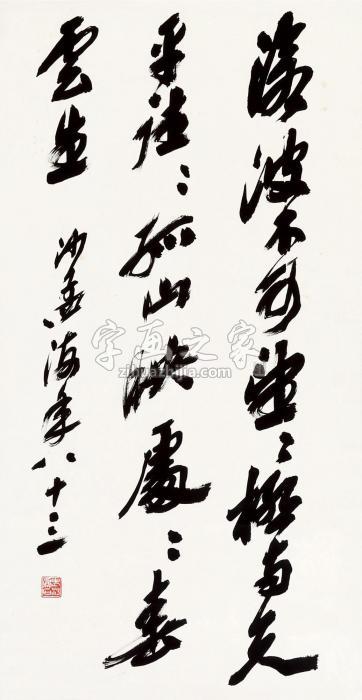 滄波不可望〻極与天
平往〻孤山映處〻春
雲生
沙孟海年八十三
字画之家
zihuazhijia.com